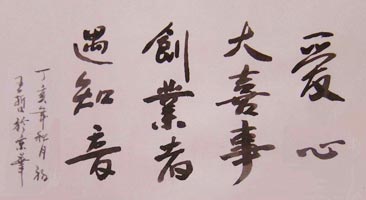 愛心
大喜事
創業者
遇知音
丁亥年秋月初
王哲於京華